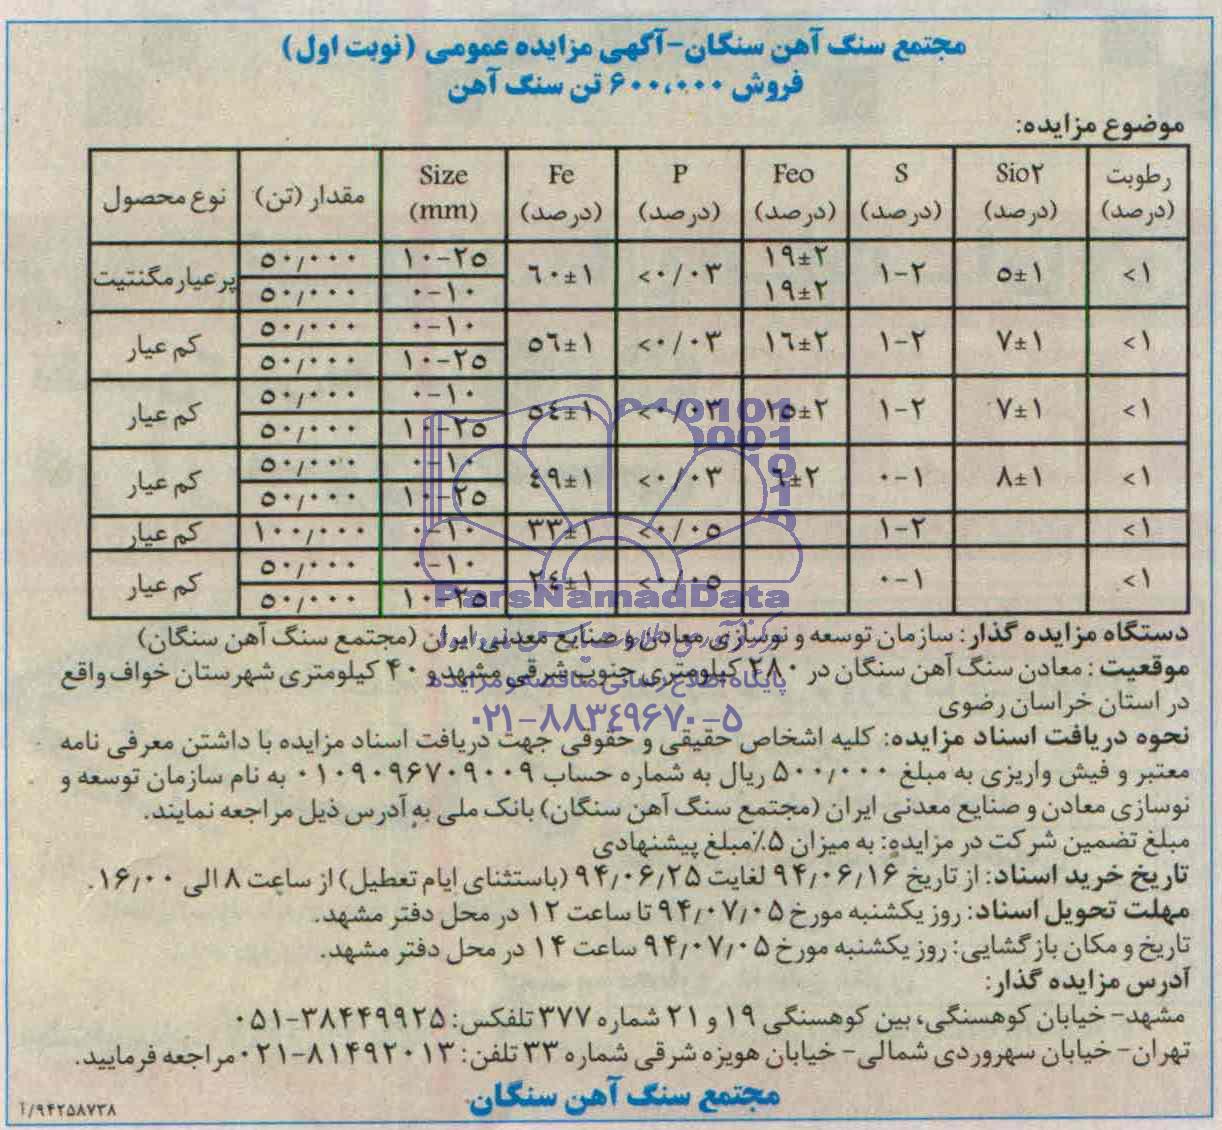 مجتمع سنگ آهن سنگان-آگهی مزایده عمومی (نوبت اول)
فروش ۶۰۰،۰۰۰ تن سنگ آهن
موضوع مزایده:
نوع محصول | مقدار (تن) | Size (mm) | Fe (درصد) | P (درصد) | Feo (درصد) | S (درصد) | Sio۲ (درصد) | رطوبت (درصد)
پرعیار مگنتیت | ۵۰/۰۰۰ | ۱۰-۲۵ | ۶۰±۱ | <۰/۰۳ | ۱۹±۲ | ۱-۲ | ۵±۱ | <۱
۵۰/۰۰۰ | ۰-۱۰ | ۱۹±۲
کم عیار | ۵۰/۰۰۰ | ۰-۱۰ | ۵۶±۱ | <۰/۰۳ | ۱۶±۲ | ۱-۲ | ۷±۱ | <۱
۵۰/۰۰۰ | ۱۰-۲۵
کم عیار | ۵۰/۰۰۰ | ۰-۱۰ | ۵۴±۱ | <۰/۰۳ | ۱۵±۲ | ۱-۲ | ۷±۱ | <۱
۵۰/۰۰۰ | ۱۰-۲۵
کم عیار | ۵۰/۰۰۰ | ۰-۱۰ | ۴۹±۱ | <۰/۰۳ | ۶±۲ | ۰-۱ | ۸±۱ | <۱
۵۰/۰۰۰ | ۱۰-۲۵
کم عیار | ۱۰۰/۰۰۰ | ۰-۱۰ | ۳۳±۱ | <۰/۰۵ | ۱-۲ | <۱
کم عیار | ۵۰/۰۰۰ | ۰-۱۰ | ۲۴±۱ | <۰/۰۵ | ۰-۱ | <۱
۵۰/۰۰۰ | ۱۰-۲۵
ParsNamadData
دستگاه مزایده گذار: سازمان توسعه و نوسازی معادن و صنایع معدنی ایران (مجتمع سنگ آهن سنگان)
موقعیت : معادن سنگ آهن سنگان در ۲۸۰ کیلومتری جنوب شرقی مشهد و ۴۰ کیلومتری شهرستان خواف واقع
پایگاه اطلاع رسانی مناقصه و مزایده
در استان خراسان رضوی
۰۲۱-۸۸۳۴۹۶۷۰-۵
نحوه دریافت اسناد مزایده: کلیه اشخاص حقیقی و حقوقی جهت دریافت اسناد مزایده با داشتن معرفی نامه
معتبر و فیش واریزی به مبلغ ۵۰۰/۰۰۰ ریال به شماره حساب ۰۱۰۹۰۹۶۷۰۹۰۰۹ به نام سازمان توسعه و
نوسازی معادن و صنایع معدنی ایران (مجتمع سنگ آهن سنگان) بانک ملی به آدرس ذیل مراجعه نمایند.
مبلغ تضمین شرکت در مزایده: به میزان ۵٪مبلغ پیشنهادی
تاریخ خرید اسناد: از تاریخ ۹۴/۰۶/۱۶ لغایت ۹۴/۰۶/۲۵ (باستثنای ایام تعطیل) از ساعت ۸ الی ۱۶/۰۰.
مهلت تحویل اسناد: روز یکشنبه مورخ ۹۴/۰۷/۰۵ تا ساعت ۱۲ در محل دفتر مشهد.
تاریخ و مکان بازگشایی: روز یکشنبه مورخ ۹۴/۰۷/۰۵ ساعت ۱۴ در محل دفتر مشهد.
آدرس مزایده گذار:
مشهد- خیابان کوهسنگی، بین کوهسنگی ۱۹ و ۲۱ شماره ۳۷۷ تلفکس: ۳۸۴۴۹۹۲۵-۰۵۱
تهران- خیابان سهروردی شمالی- خیابان هویزه شرقی شماره ۳۳ تلفن: ۸۱۴۹۲۰۱۳-۰۲۱مراجعه فرمایید.
مجتمع سنگ آهن سنگان
آ/۹۴۲۵۸۷۳۸